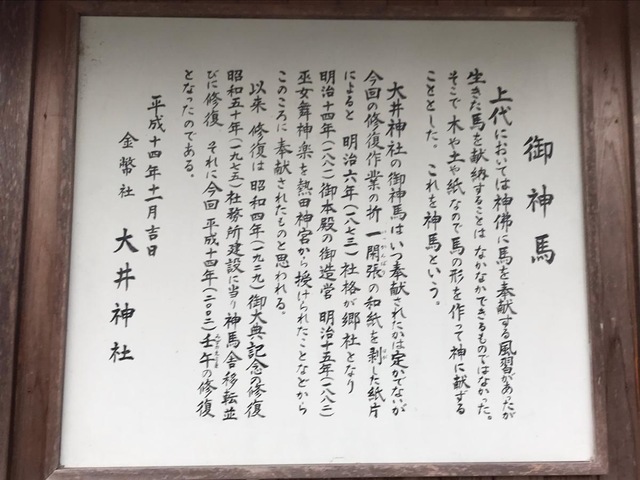 御神馬
上代においては神佛に馬を奉献する風習があったが
生きた馬を献納することは なかなかできるものではなかった。
そこで 木や土や紙なので馬の形を作って神に献ずる
こととした。 これを神馬という。
大井神社の御神馬はいつ奉献されたかは定かでないが
今回の修復作業の折 一閑張の和紙を剥した紙片
によると 明治六年(一八七三)社格が郷社となり
明治十四年(一八八一)御本殿の御造営 明治十五年(一八八二)
巫女舞神楽を熱田神宮から授けられたことなどから
このころに奉献されたものと思われる。
以来 修復は 昭和四年(一九二九)御大典記念の修復
昭和五十年(一九七五)社務所建設に当り神馬舎移転並
びに修復 それに今回 平成十四年(二〇〇二)壬午の修復
となったのである。
平成十四年十一月吉日
金幣社 大井神社